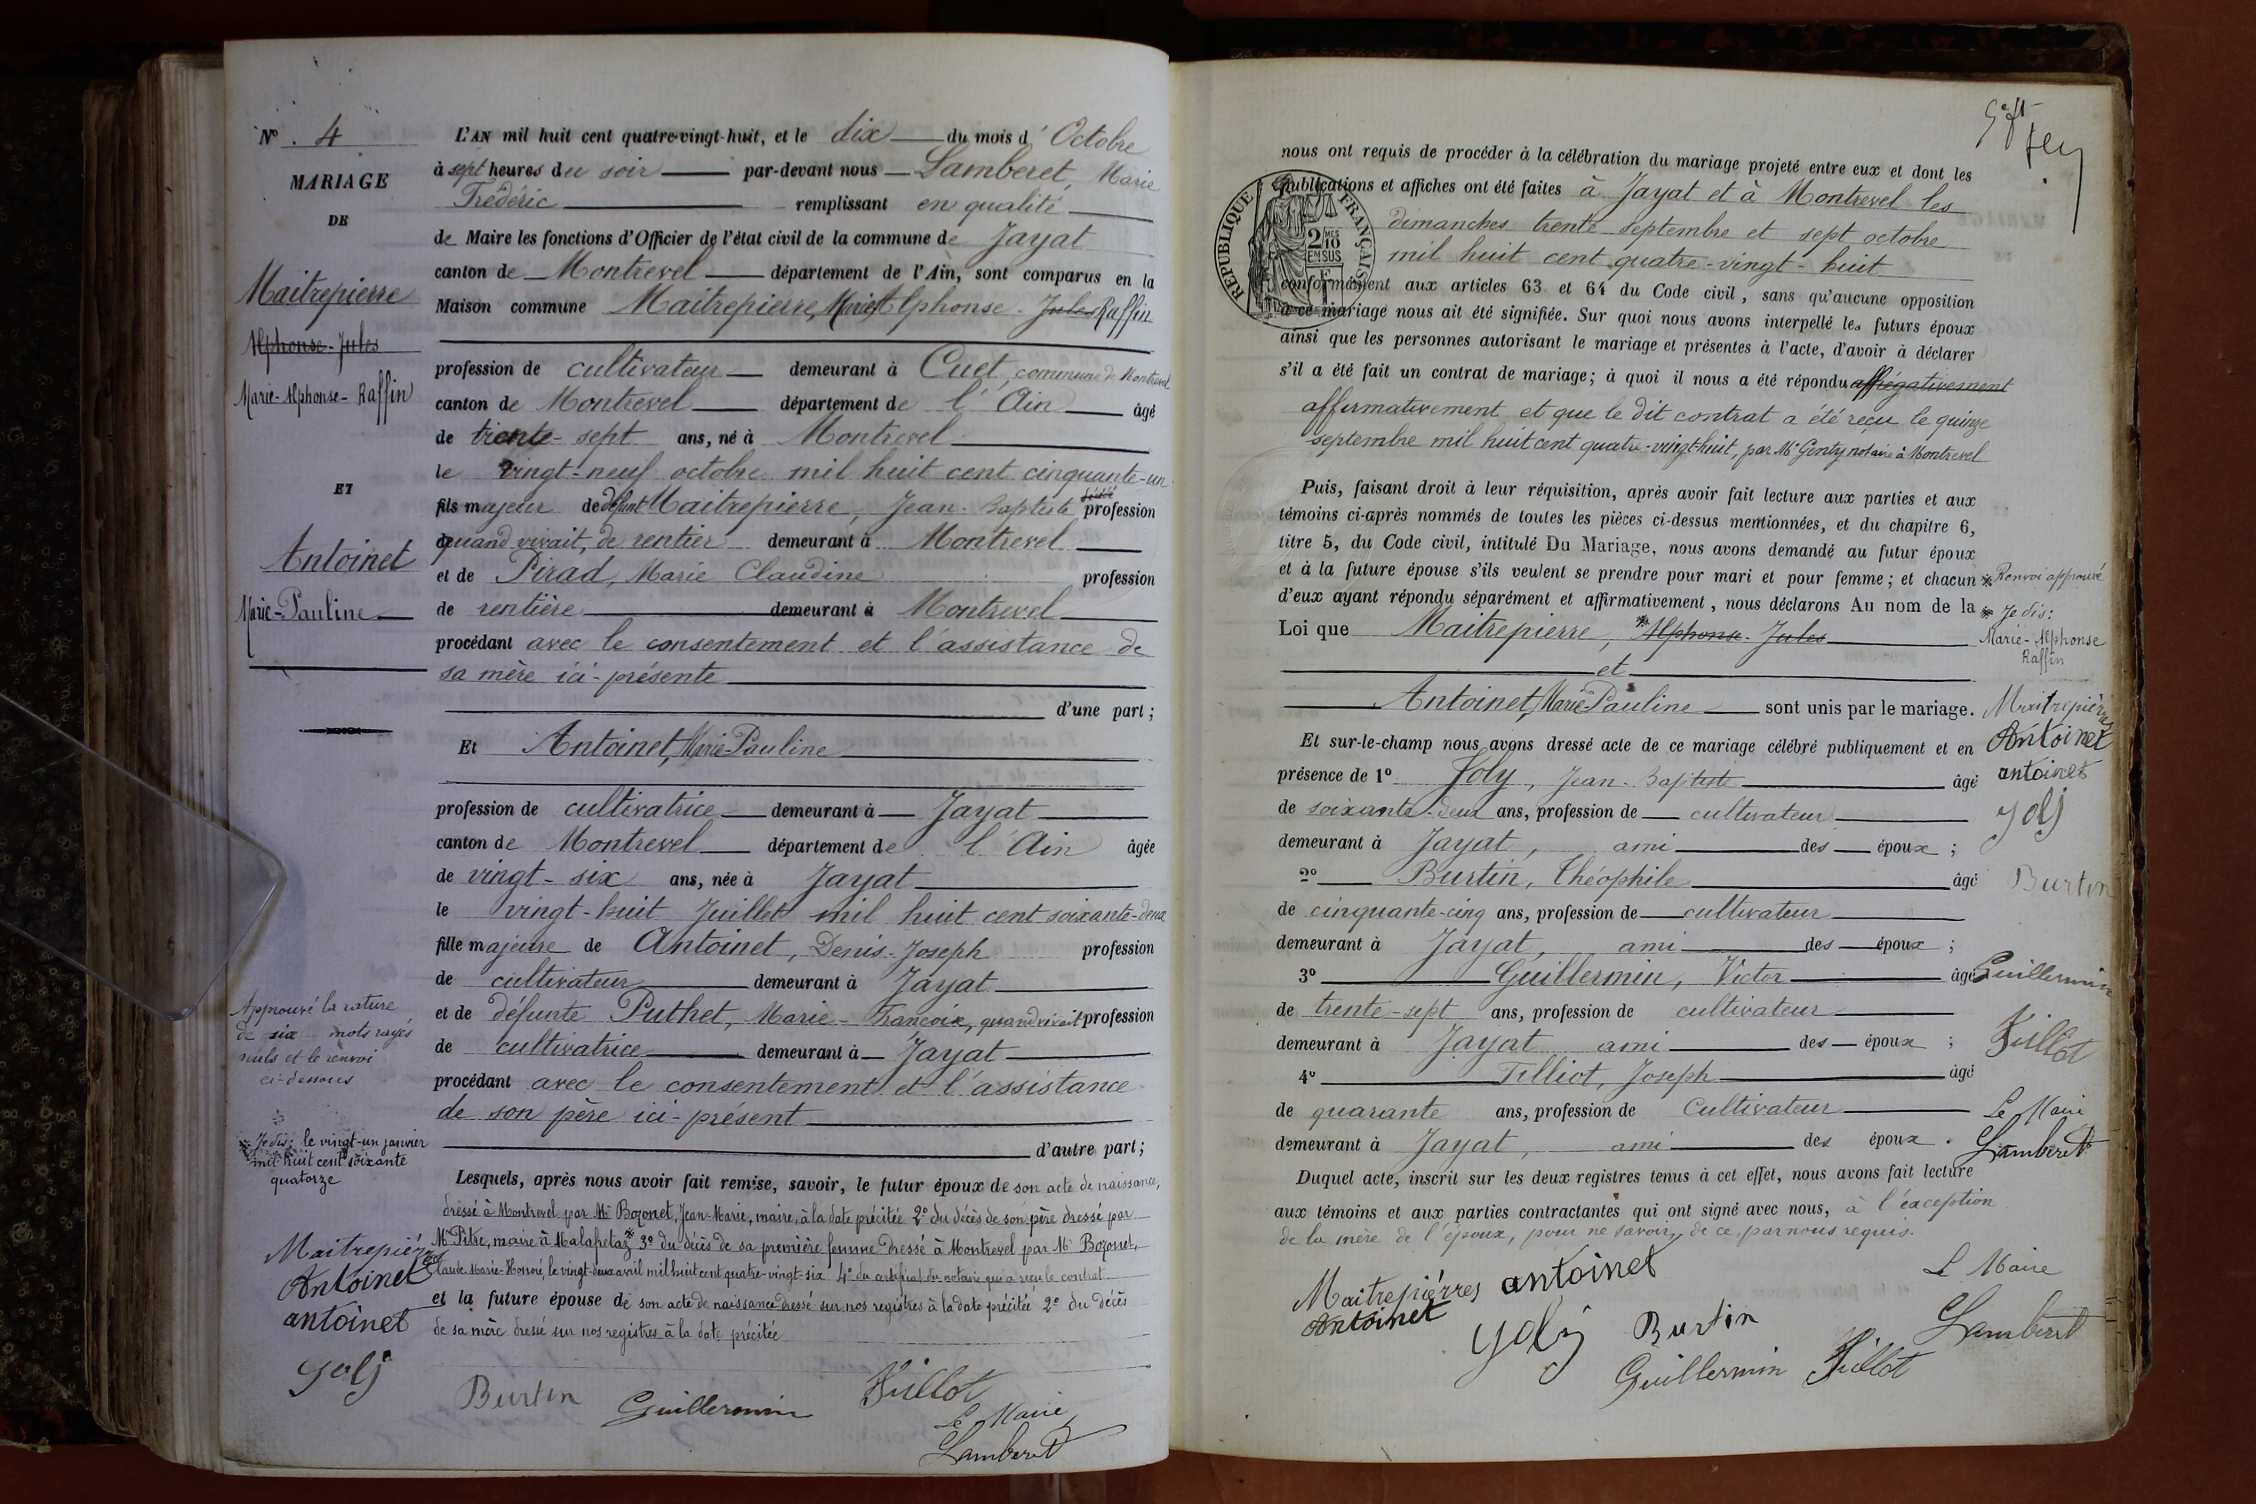 N° 4
MARIAGE
DE
Maitrepierre
Alphonse-Jules
Marie-Alphonse-Raffin
ET
Antoinet
Marie-Pauline
Approuvé la rature
de six mots rayés
nuls et le renvoi
ci-dessous
* Je dis: le vingt-un janvier
mil huit cent soixante
quatorze
L'AN mil huit cent quatre-vingt-huit, et le dix du mois d'Octobre
à sept heures du soir par-devant nous Lamberet, Marie
Frédéric remplissant en qualité
de Maire les fonctions d'Officier de l'état civil de la commune de Jayat
canton de Montrevel département de l'Ain, sont comparus en la
Maison commune Maitrepierre, Marie Alphonse Jules Raffin
profession de cultivateur demeurant à Cuet, commune de Montrevel
canton de Montrevel département de l'Ain âgé
de trente-sept ans, né à Montrevel
le vingt-neuf octobre mil huit cent cinquante-un
fils majeur de défunt Maitrepierre, Jean-Baptiste profession
quand vivait, de rentier demeurant à Montrevel
et de Pirad, Marie Claudine profession
de rentière demeurant à Montrevel
procédant avec le consentement et l'assistance de
sa mère ici-présente
d'une part ;
Et Antoinet, Marie-Pauline
profession de cultivatrice demeurant à Jayat
canton de Montrevel département de l'Ain âgée
de vingt-six ans, née à Jayat
le vingt-huit Juillet mil huit cent soixante-deux
fille majeure de Antoinet, Denis-Joseph profession
de cultivateur demeurant à Jayat
et de défunte Puthet, Marie-Francoise, quand vivait profession
de cultivatrice demeurant à Jayat
procédant avec le consentement et l'assistance
de son père ici-présent
d'autre part ;
Lesquels, après nous avoir fait remise, savoir, le futur époux de son acte de naissance,
dressé à Montrevel par Mr Bozonet, Jean-Marie, maire, à la date précitée 2° du décès de son père dressé par
Mr Pitre, maire à Malafretaz * 3° du décès de sa première femme dressé à Montrevel par Mr Bozonet,
Claude Marie-Honoré, le vingt-deux avril mil huit cent quatre-vingt-six 4° du certificat du notaire qui a reçu le contrat
et la future épouse de son acte de naissance dressé sur nos registres à la date précitée 2° du décès
de sa mère dressé sur nos registres à la date précitée
Maitrepierres
Antoinet
antoinet
Joly
Burtin
Guillermin
Tilliot
Le Maire
Lamberet
nous ont requis de procéder à la célébration du mariage projeté entre eux et dont les
publications et affiches ont été faites à Jayat et à Montrevel les
dimanches trente septembre et sept octobre
mil huit cent quatre-vingt-huit
RÉPUBLIQUE FRANÇAISE
2 MES 10 EN SUS
conformément aux articles 63 et 64 du Code civil, sans qu'aucune opposition
à ce mariage nous ait été signifiée. Sur quoi nous avons interpellé les futurs époux
ainsi que les personnes autorisant le mariage et présentes à l'acte, d'avoir à déclarer
s'il a été fait un contrat de mariage ; à quoi il nous a été répondu
affirmativement et que le dit contrat a été reçu le quinze
septembre mil huit cent quatre-vingt-huit, par Mr Genty notaire à Montrevel
Puis, faisant droit à leur réquisition, après avoir fait lecture aux parties et aux
témoins ci-après nommés de toutes les pièces ci-dessus mentionnées, et du chapitre 6,
titre 5, du Code civil, intitulé Du Mariage, nous avons demandé au futur époux
et à la future épouse s'ils veulent se prendre pour mari et pour femme ; et chacun
d'eux ayant répondu séparément et affirmativement, nous déclarons Au nom de la
Loi que Maitrepierre, * Alphonse-Jules
et
Antoinet, Marie-Pauline sont unis par le mariage.
Et sur-le-champ nous avons dressé acte de ce mariage célébré publiquement et en
présence de 1° Joly, Jean-Baptiste âgé
de soixante-deux ans, profession de cultivateur
demeurant à Jayat, ami des époux ;
2° Burtin, Théophile âgé
de cinquante-cinq ans, profession de cultivateur
demeurant à Jayat, ami des époux ;
3° Guillermin, Victor âgé
de trente-sept ans, profession de cultivateur
demeurant à Jayat ami des époux ;
4° Tilliot, Joseph âgé
de quarante ans, profession de Cultivateur
demeurant à Jayat, ami des époux.
Duquel acte, inscrit sur les deux registres tenus à cet effet, nous avons fait lecture
aux témoins et aux parties contractantes qui ont signé avec nous, à l'éxception
de la mère de l'époux, pour ne savoir, de ce, par nous requis.
* Renvoi approuvé
* Je dis:
Marie-Alphonse
Raffin
Maitrepierres
Antoinet
antoinet
Joly
Burtin
Guillermin
Tilliot
Le Maire
Lamberet
Maitrepierres
antoinet
Antoinet
Joly
Burtin
Guillermin
Tilliot
Le Maire
Lamberet